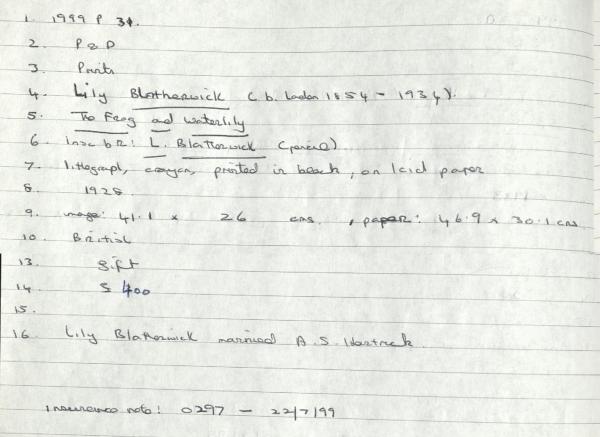 1. 1999 P 34.
2. P & D
3. Prints
4. Lily Blatherwick (b. London 1854 - 1934).
5. The Frog and Waterlily
6. Insc br: L. Blatherwick (pencil)
7. lithograph, crayon, printed in black, on laid paper
8. 1928
9. image: 41.1 x 26 cms, paper: 46.9 x 30.1 cms
10. British
13. gift
14. 400
15.
16. Lily Blatherwick married A. S. Hartrick.
Insurance note: 0297 - 22/7/99